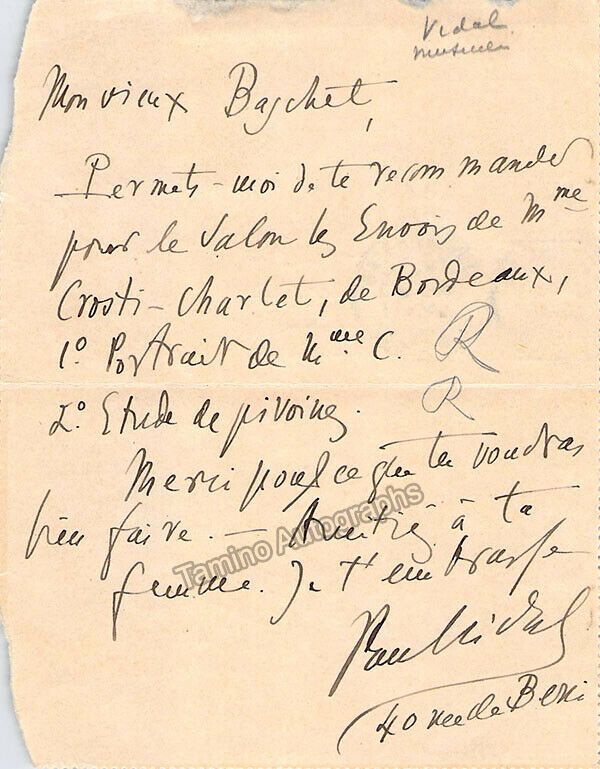 Vidal
musicien
Mon vieux Baschet,
Permets-moi de te recommander
pour le Salon les Envois de Mme
Crosti-Charlet, de Bordeaux,
1º Portrait de Mme C. R
2º Etude de pivoines. R
Merci pour ce que tu voudras
bien faire. — Amitiés à ta
femme. Je t'embrasse
Paul Vidal
40 rue de Berri
Tamino Autographs